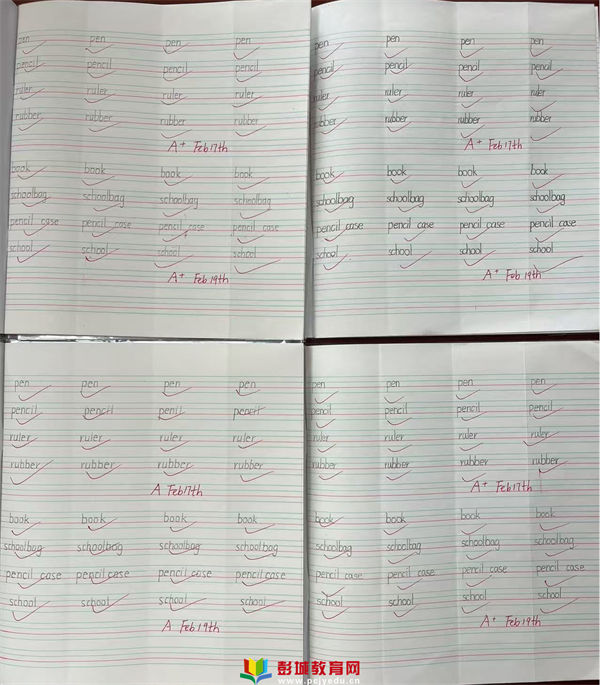 pen pen pen pen
pencil pencil pencil pencil
ruler ruler ruler ruler
rubber rubber rubber rubber
A+ Feb 17th
book book book book
schoolbag schoolbag schoolbag schoolbag
pencil case pencil case pencil case pencil case
school school school school
A+ Feb 19th
pen pen pen pen
pencil pencil pencil pencil
ruler ruler ruler ruler
rubber rubber rubber rubber
A+ Feb 17th
book book book book
schoolbag schoolbag schoolbag schoolbag
pencil case pencil case pencil case pencil case
school school school school
A+ Feb 19th
pen pen pen pen
pencil
ruler ruler ruler ruler
rubber rubber rubber rubber
A Feb 17th
book book book book
schoolbag schoolbag schoolbag schoolbag
pencil case pencil case pencil case pencil case
school school school school
A Feb 19th
pen pen pen pen
pencil pencil pencil pencil
ruler ruler ruler ruler
rubber rubber rubber rubber
A+ Feb 17th
book book book book
schoolbag schoolbag schoolbag schoolbag
pencil case pencil case pencil case pencil case
school school school school
A+ Feb 19th
彭城教育网
www.pcjyedu.cn